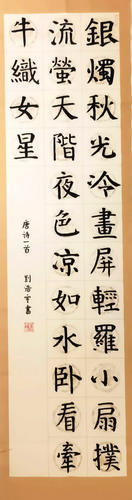 銀燭秋光冷畫屏輕羅小扇撲
流螢天階夜色凉如水卧看牽
牛織女星
唐诗一首
劉浩宇書